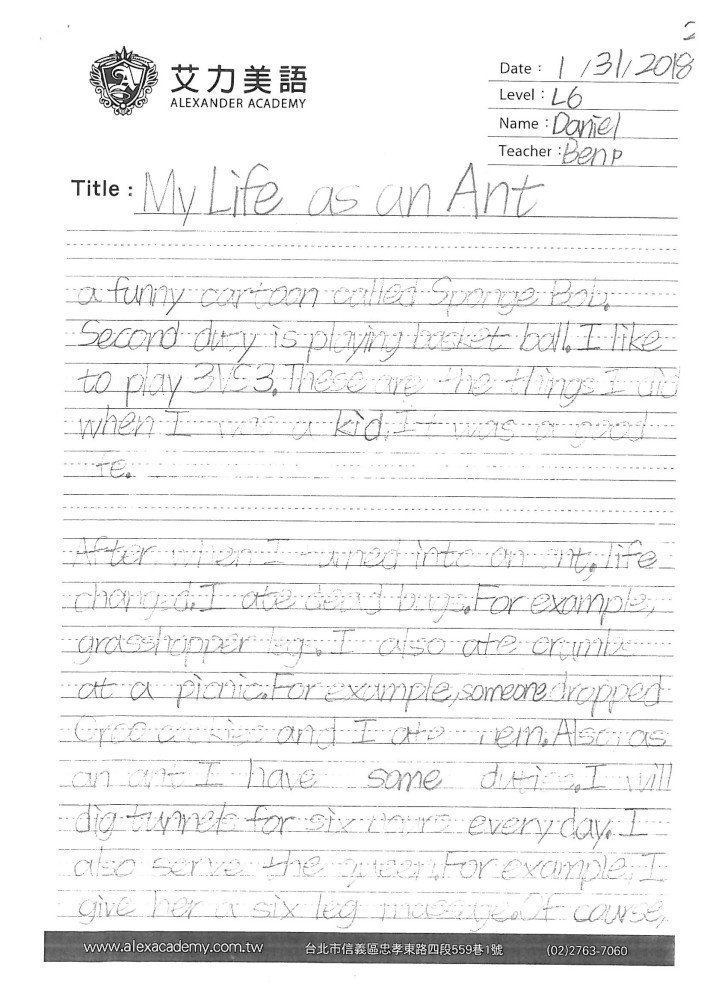 2
艾力美語
ALEXANDER ACADEMY
Date : 1/31/2018
Level : L6
Name : Daniel
Teacher : Ben P
Title : My Life as an Ant
a funny cartoon called Sponge Bob.
Second duty is playing basket ball. I like
to play 3VS3. These are the things I did
when I was a kid. It was a good
fe.
After when I turned into an ant, life
changed. I ate dead bugs. For example,
grasshopper leg. I also ate crumbs
at a picnic. For example, someone dropped
Oreo cookies and I ate them. Also as
an ant I have some duties. I will
dig tunnels for six hours everyday. I
also serve the queen. For example, I
give her a six leg massage. Of course,
www.alexacademy.com.tw 台北市信義區忠孝東路四段559巷1號 (02)2763-7060